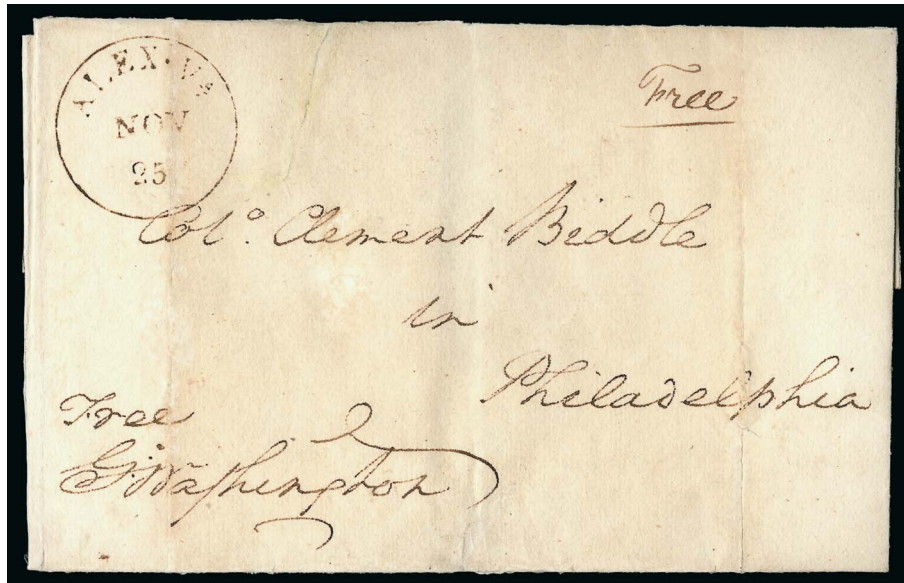 ALEX. Va
NOV
25
Free
Colo. Clement Biddle
in
Philadelphia
Free
Go: Washington